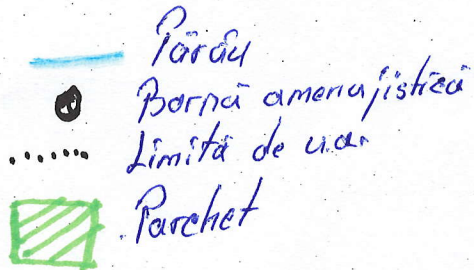 Pârâu
Bornă amenajistică
Limită de u.a.
Parchet